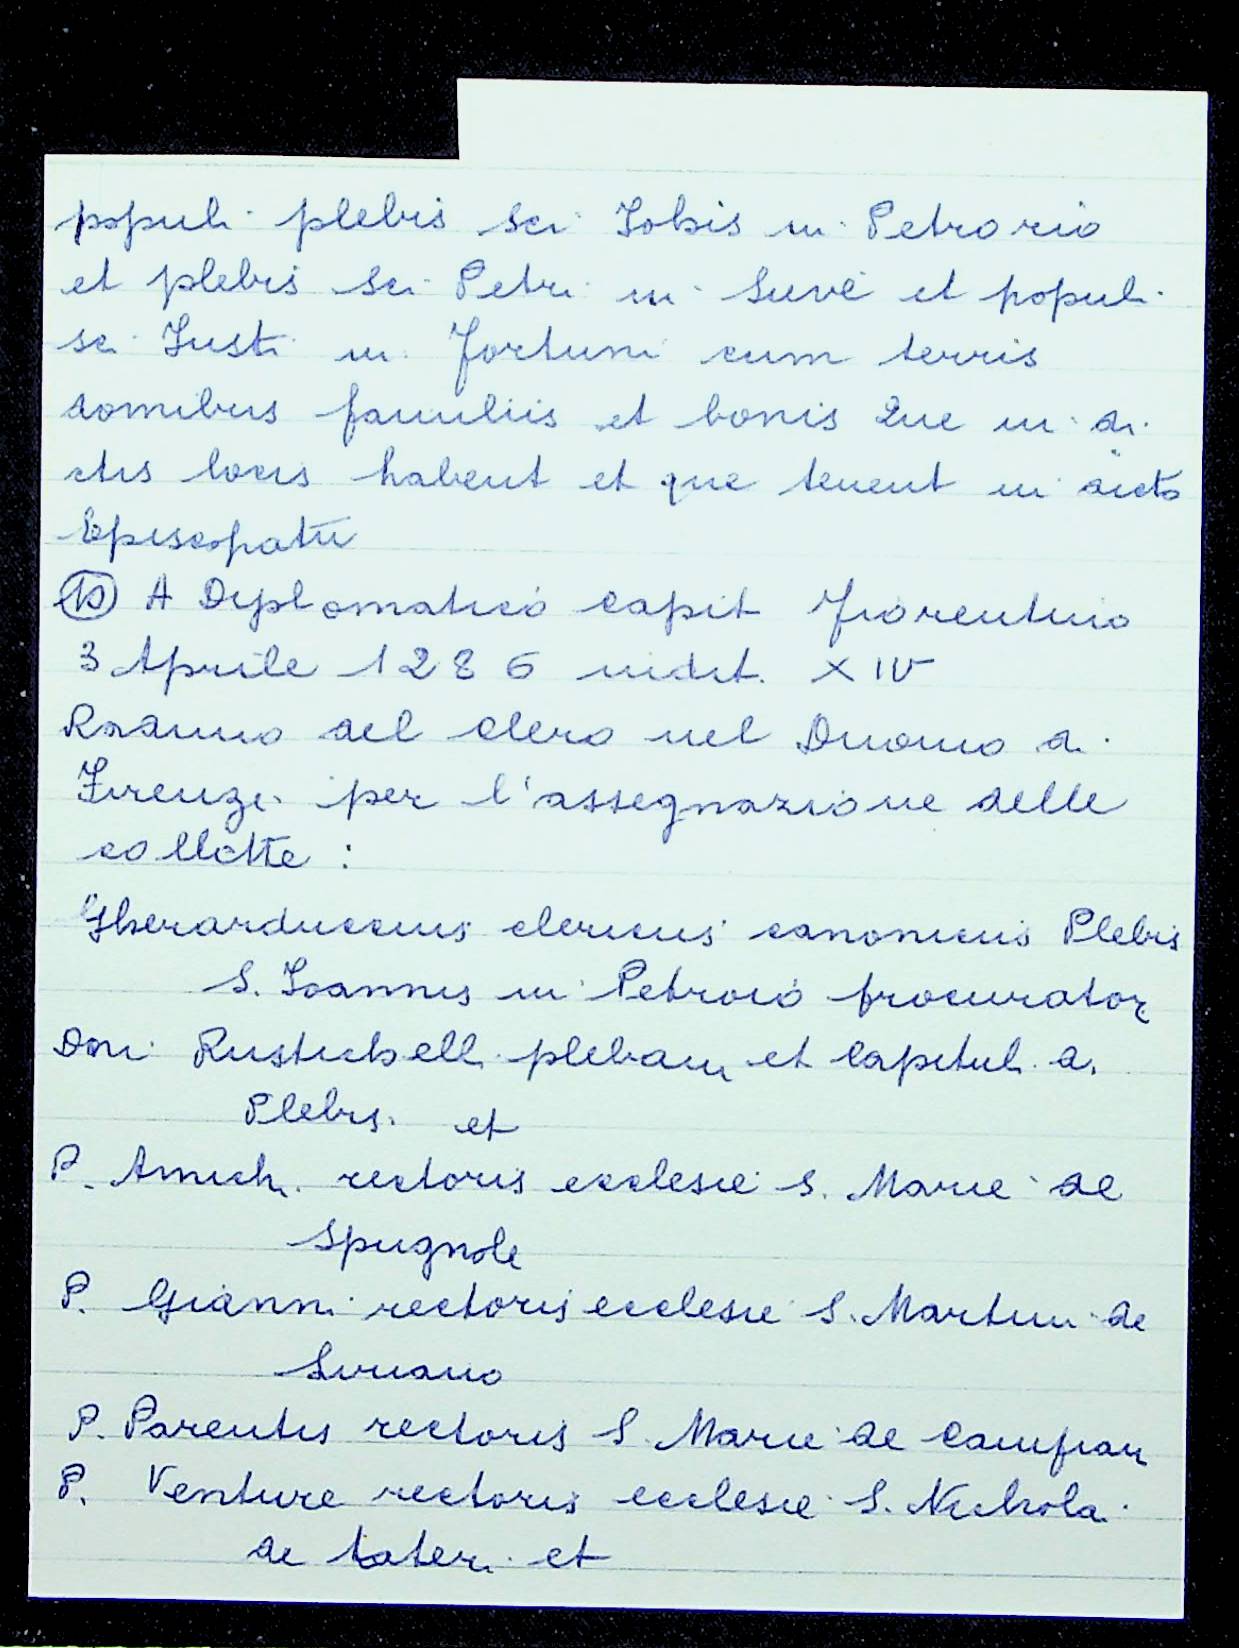 populi plebis sci Iohis in Petrorio
et plebis sci Petri in Sieve et populi
sci Iusti in Fortuni cum terris
domibus familiis et bonis que in di
ctis locis habent et que tenent in dicto
Episcopatu
10 A Diplomatico capit Fiorentino
3 Aprile 1286 indit. XIV
Raduno del clero nel Duomo di
Firenze per l'assegnazione delle
collette :
Gherarduccius clericus canonicus Plebis
S. Ioannis in Petroio procurator
Doni Rustichelli plebani et Capituli d.
Plebis. et
P. Amich. rectoris ecclesie S. Marie de
Spugnole
P. Gianni rectoris ecclesie S. Martini de
P. Parentis rectoris S. Marie de Campiani
P. Venture rectoris ecclesie S. Nichola
de Lateri et